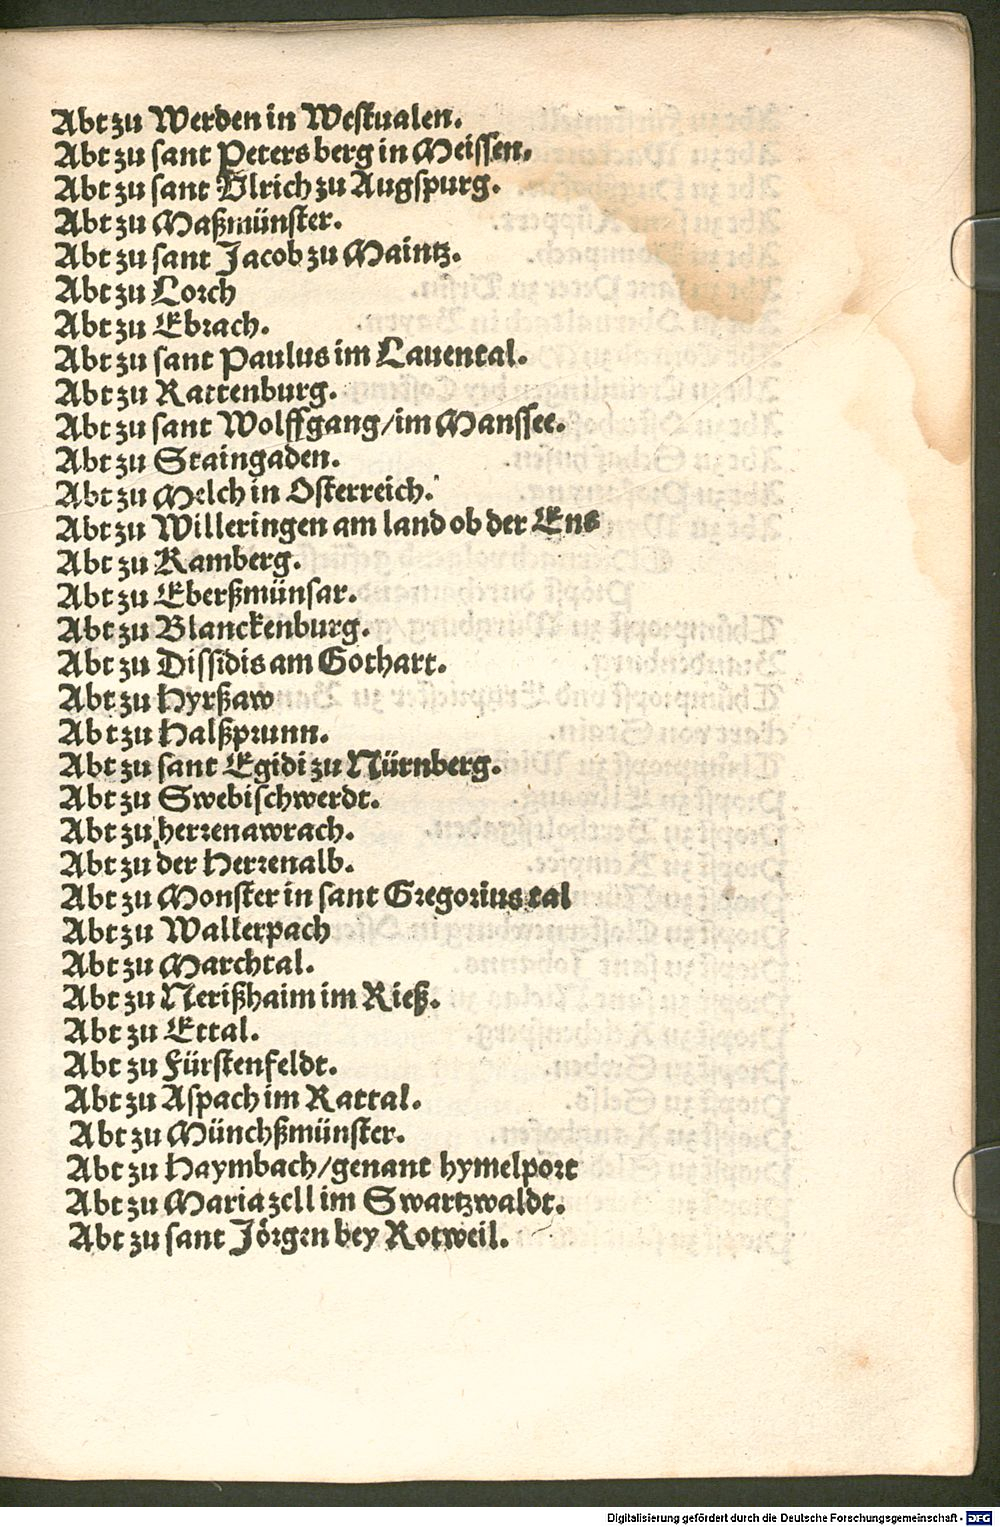 Abt zu Werden in Westualen.
Abt zu sant Peters berg in Meissen.
Abt zu sant Vlrich zu Augspurg.
Abt zu Maßmünster.
Abt zu sant Jacob zu Maintz.
Abt zu Lorch
Abt zu Ebrach.
Abt zu sant Paulus im Lauental.
Abt zu Rattenburg.
Abt zu sant Wolffgang/im Manssee.
Abt zu Staingaden.
Abt zu Melch in Osterreich.
Abt zu Willeringen am land ob der Ens
Abt zu Ramberg.
Abt zu Eberßmünsar.
Abt zu Blanckenburg.
Abt zu Dissidis am Gothart.
Abt zu Hyrßaw
Abt zu Halßprunn.
Abt zu sant Egidi zu Nürnberg.
Abt zu Swebischwerdt.
Abt zu herrenawrach.
Abt zu der Herrenalb.
Abt zu Monster in sant Gregorius tal
Abt zu Wallerpach
Abt zu Marchtal.
Abt zu Nerißhaim im Rieß.
Abt zu Ettal.
Abt zu Fürstenfeldt.
Abt zu Aspach im Rattal.
Abt zu Münchßmünster.
Abt zu Haymbach/genant hymelport
Abt zu Mariazell im Swartzwaldt.
Abt zu sant Jörgen bey Rotweil.
Digitalisierung gefördert durch die Deutsche Forschungsgemeinschaft - DFG